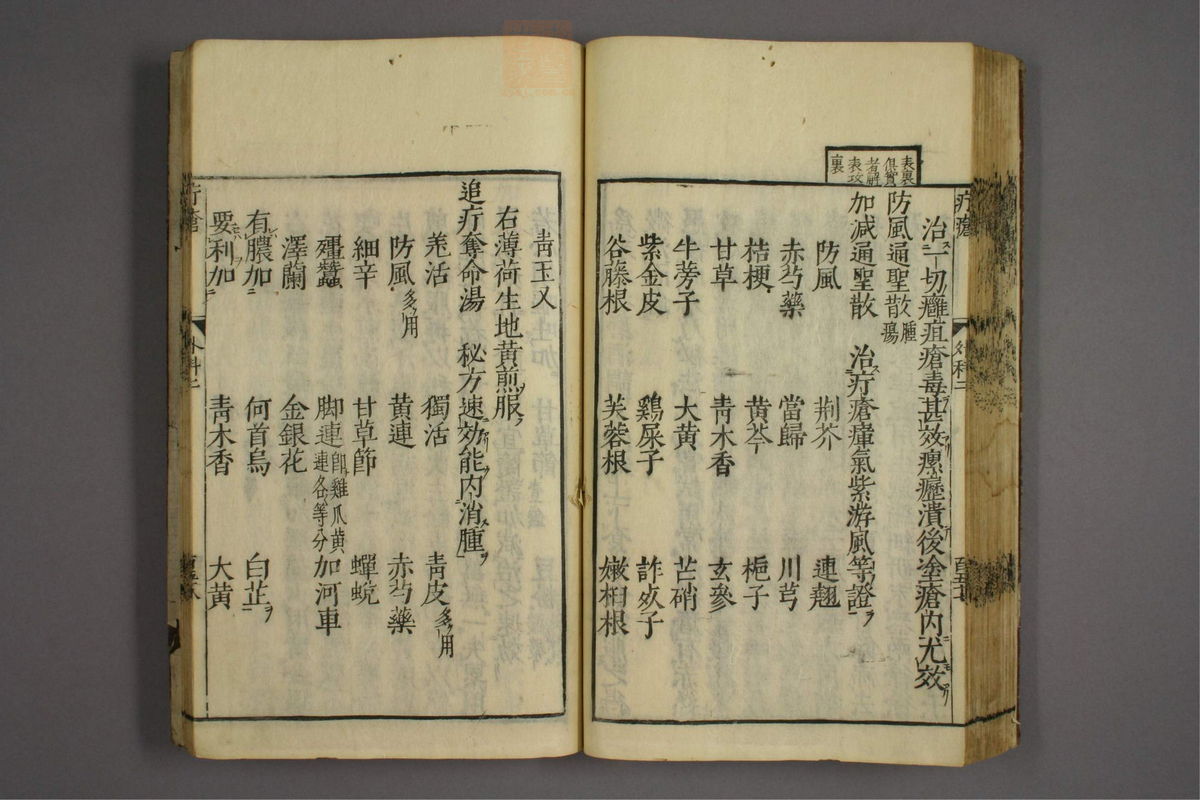 表裏
俱實
者解
表攻
裏
治一切癰疽瘡毒甚效瘰癧潰後塗瘡內尤效
防風通聖散 腫瘍
加减通聖散 治疔瘡瘴氣紫游風等證
防風 荆芥 連翹
赤芍藥 當歸 川芎
桔梗 黄芩 梔子
甘草 青木香 玄參
牛蒡子 大黄 芒硝
紫金皮 鷄屎子 詐死子
谷藤根 芙蓉根 嫩柏根
青玉乂
右薄荷生地黄煎服
追疔奪命湯 秘方速効能内消腫
羌活 獨活 青皮多用
防風多用 黄連 赤芍藥
細辛 甘草節 蟬蛻
殭蠶 脚連即雞爪黄連各等分 加河車
澤蘭 金銀花
有膿加 何首烏 白芷
要利加 青木香 大黄
疔瘡
外科二
疔瘡
外科二